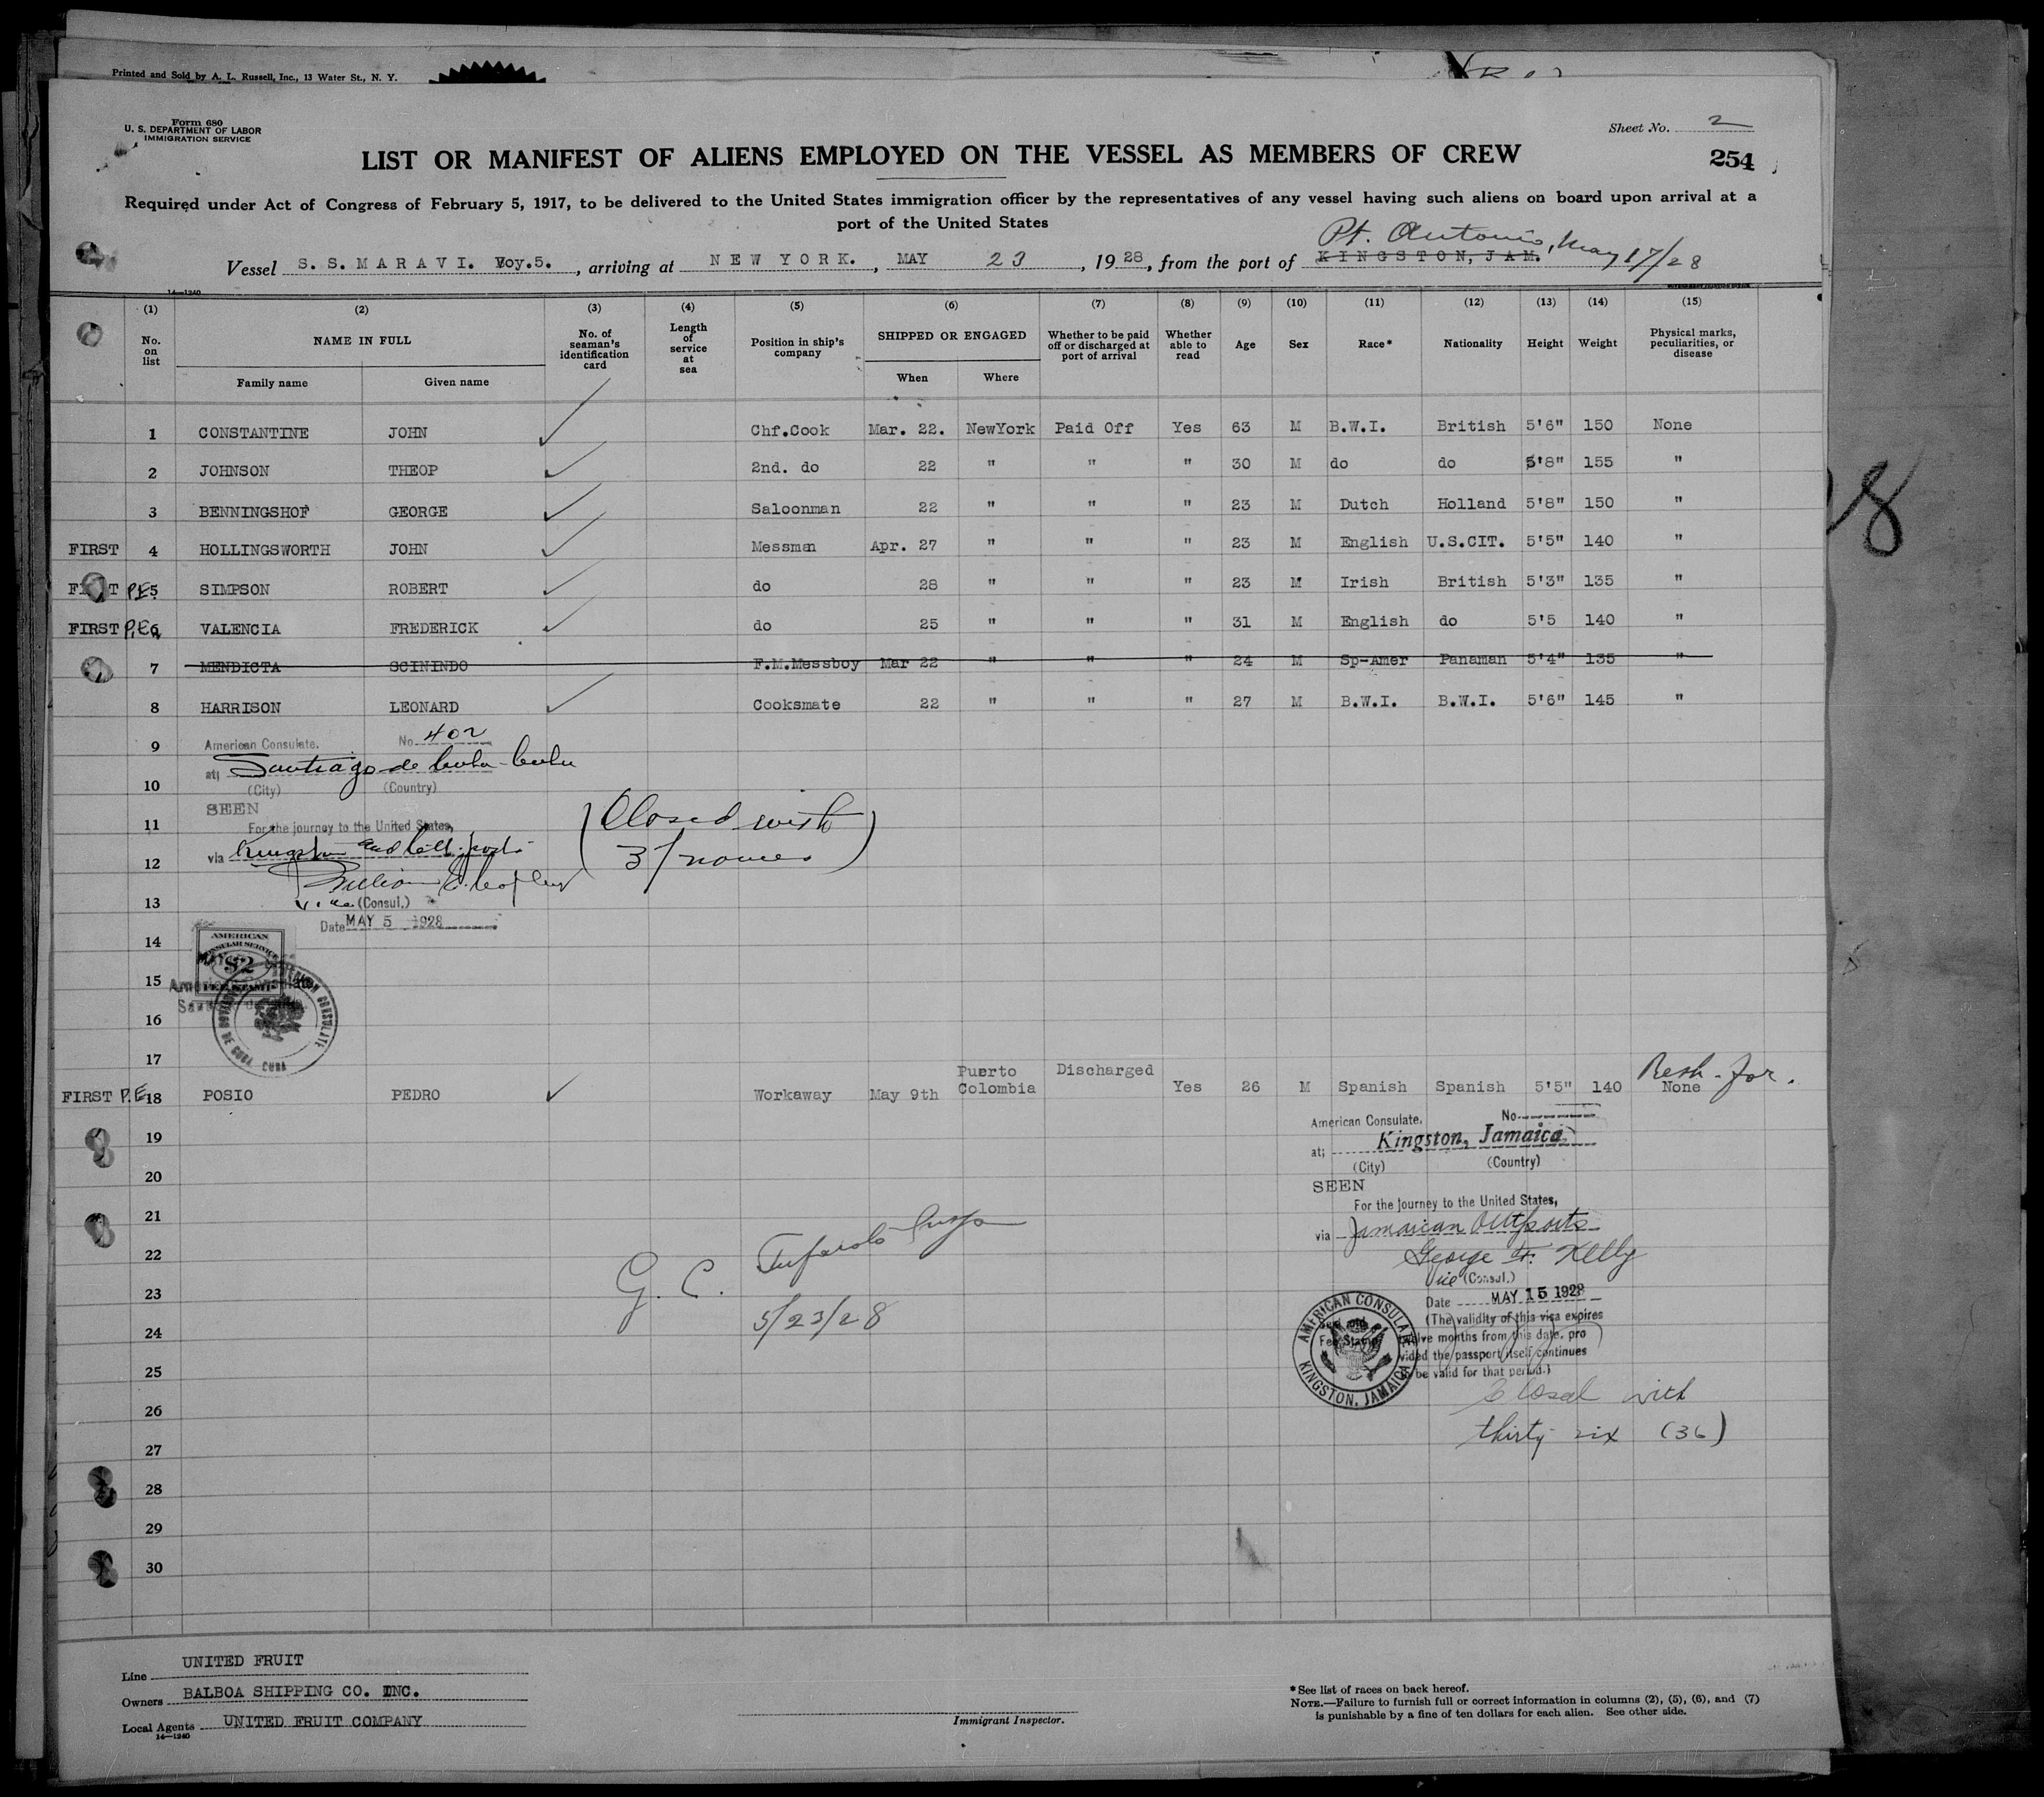 Printed and Sold by A. L. Russell, Inc., 13 Water St., N. Y.
Form 680
U. S. DEPARTMENT OF LABOR
IMMIGRATION SERVICE
Sheet No. 2
LIST OR MANIFEST OF ALIENS EMPLOYED ON THE VESSEL AS MEMBERS OF CREW
254
Required under Act of Congress of February 5, 1917, to be delivered to the United States immigration officer by the representatives of any vessel having such aliens on board upon arrival at a
port of the United States
Pt. Antonio, May 17/28
Vessel S. S. M A R A V I. Voy.5. , arriving at N E W Y O R K. , MAY 23 , 19 28 , from the port of K I N G S T O N, J A M.
14—1240
(1) (2) (3) (4) (5) (6) (7) (8) (9) (10) (11) (12) (13) (14) (15)
No. on list NAME IN FULL Family name Given name No. of seaman's identification card Length of service at sea Position in ship's company SHIPPED OR ENGAGED When Where Whether to be paid off or discharged at port of arrival Whether able to read Age Sex Race* Nationality Height Weight Physical marks, peculiarities, or disease
1 CONSTANTINE JOHN Chf.Cook Mar. 22. NewYork Paid Off Yes 63 M B.W.I. British 5'6" 150 None
2 JOHNSON THEOP 2nd. do 22 " " " 30 M do do 5'8" 155 "
3 BENNINGSHOF GEORGE Saloonman 22 " " " 23 M Dutch Holland 5'8" 150 "
FIRST 4 HOLLINGSWORTH JOHN Messman Apr. 27 " " " 23 M English U.S.CIT. 5'5" 140 "
FIRST P.E. 5 SIMPSON ROBERT do 28 " " " 23 M Irish British 5'3" 135 "
FIRST P.E. 6 VALENCIA FREDERICK do 25 " " " 31 M English do 5'5 140 "
7 MENDICTA SCININDO F.M.Messboy Mar 22 " " " 24 M Sp-Amer Panaman 5'4" 135 "
8 HARRISON LEONARD Cooksmate 22 " " " 27 M B.W.I. B.W.I. 5'6" 145 "
9 American Consulate. No. 402
at; Santiago de Cuba - Cuba
10 (City) (Country)
SEEN
11 For the journey to the United States,
(Closed with
12 via Kingston and
31 names)
13 (Consul.)
Date MAY 5 1928
14 AMERICAN
CONSULAR SERVICE
$2
15 American Consulate
FEE STAMP
16
AMERICAN CONSULATE
SANTIAGO DE CUBA, CUBA
17
FIRST P.E. 18 POSIO PEDRO Workaway May 9th Puerto Colombia Discharged Yes 26 M Spanish Spanish 5'5" 140 None
American Consulate. No.
19 at; Kingston, Jamaica
(City) (Country)
20
SEEN
21 For the journey to the United States,
via Jamaican Outports
22 George F. Kelly
Vice (Consul.)
23 Date MAY 15 1928
G. C.
5/23/28
24 (The validity of this visa expires
twelve months from this date, pro
vided the passport itself continues
25 to be valid for that period.)
AMERICAN CONSULATE
KINGSTON, JAMAICA
Fee Stamp
26 Closed with
27 thirty-six (36)
28
29
30
Line UNITED FRUIT
Owners BALBOA SHIPPING CO. INC.
Local Agents UNITED FRUIT COMPANY
14—1240
Immigrant Inspector.
*See list of races on back hereof.
NOTE.—Failure to furnish full or correct information in columns (2), (5), (6), and (7)
is punishable by a fine of ten dollars for each alien. See other side.